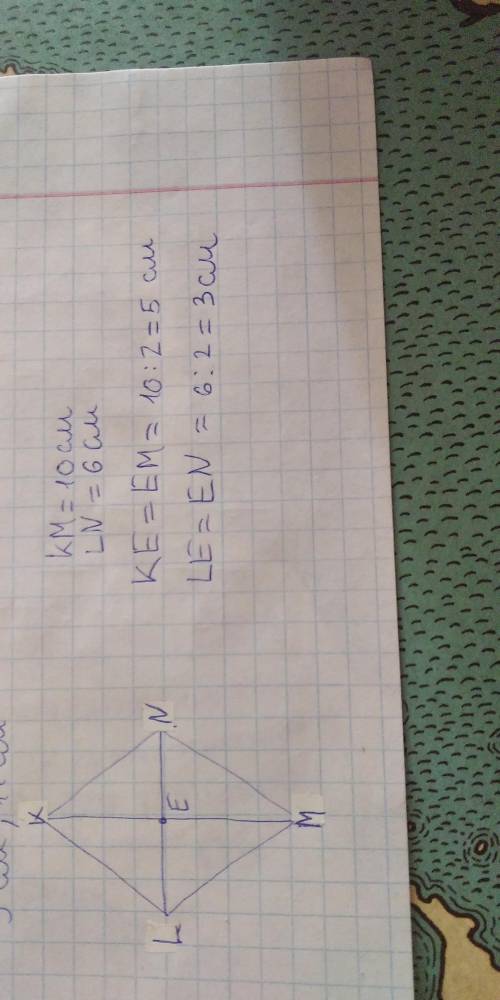 KM = 10 см
LN = 6 см
KE = EM = 10 : 2 = 5 см
LE = EN = 6 : 2 = 3 см
K
N
E
L
M